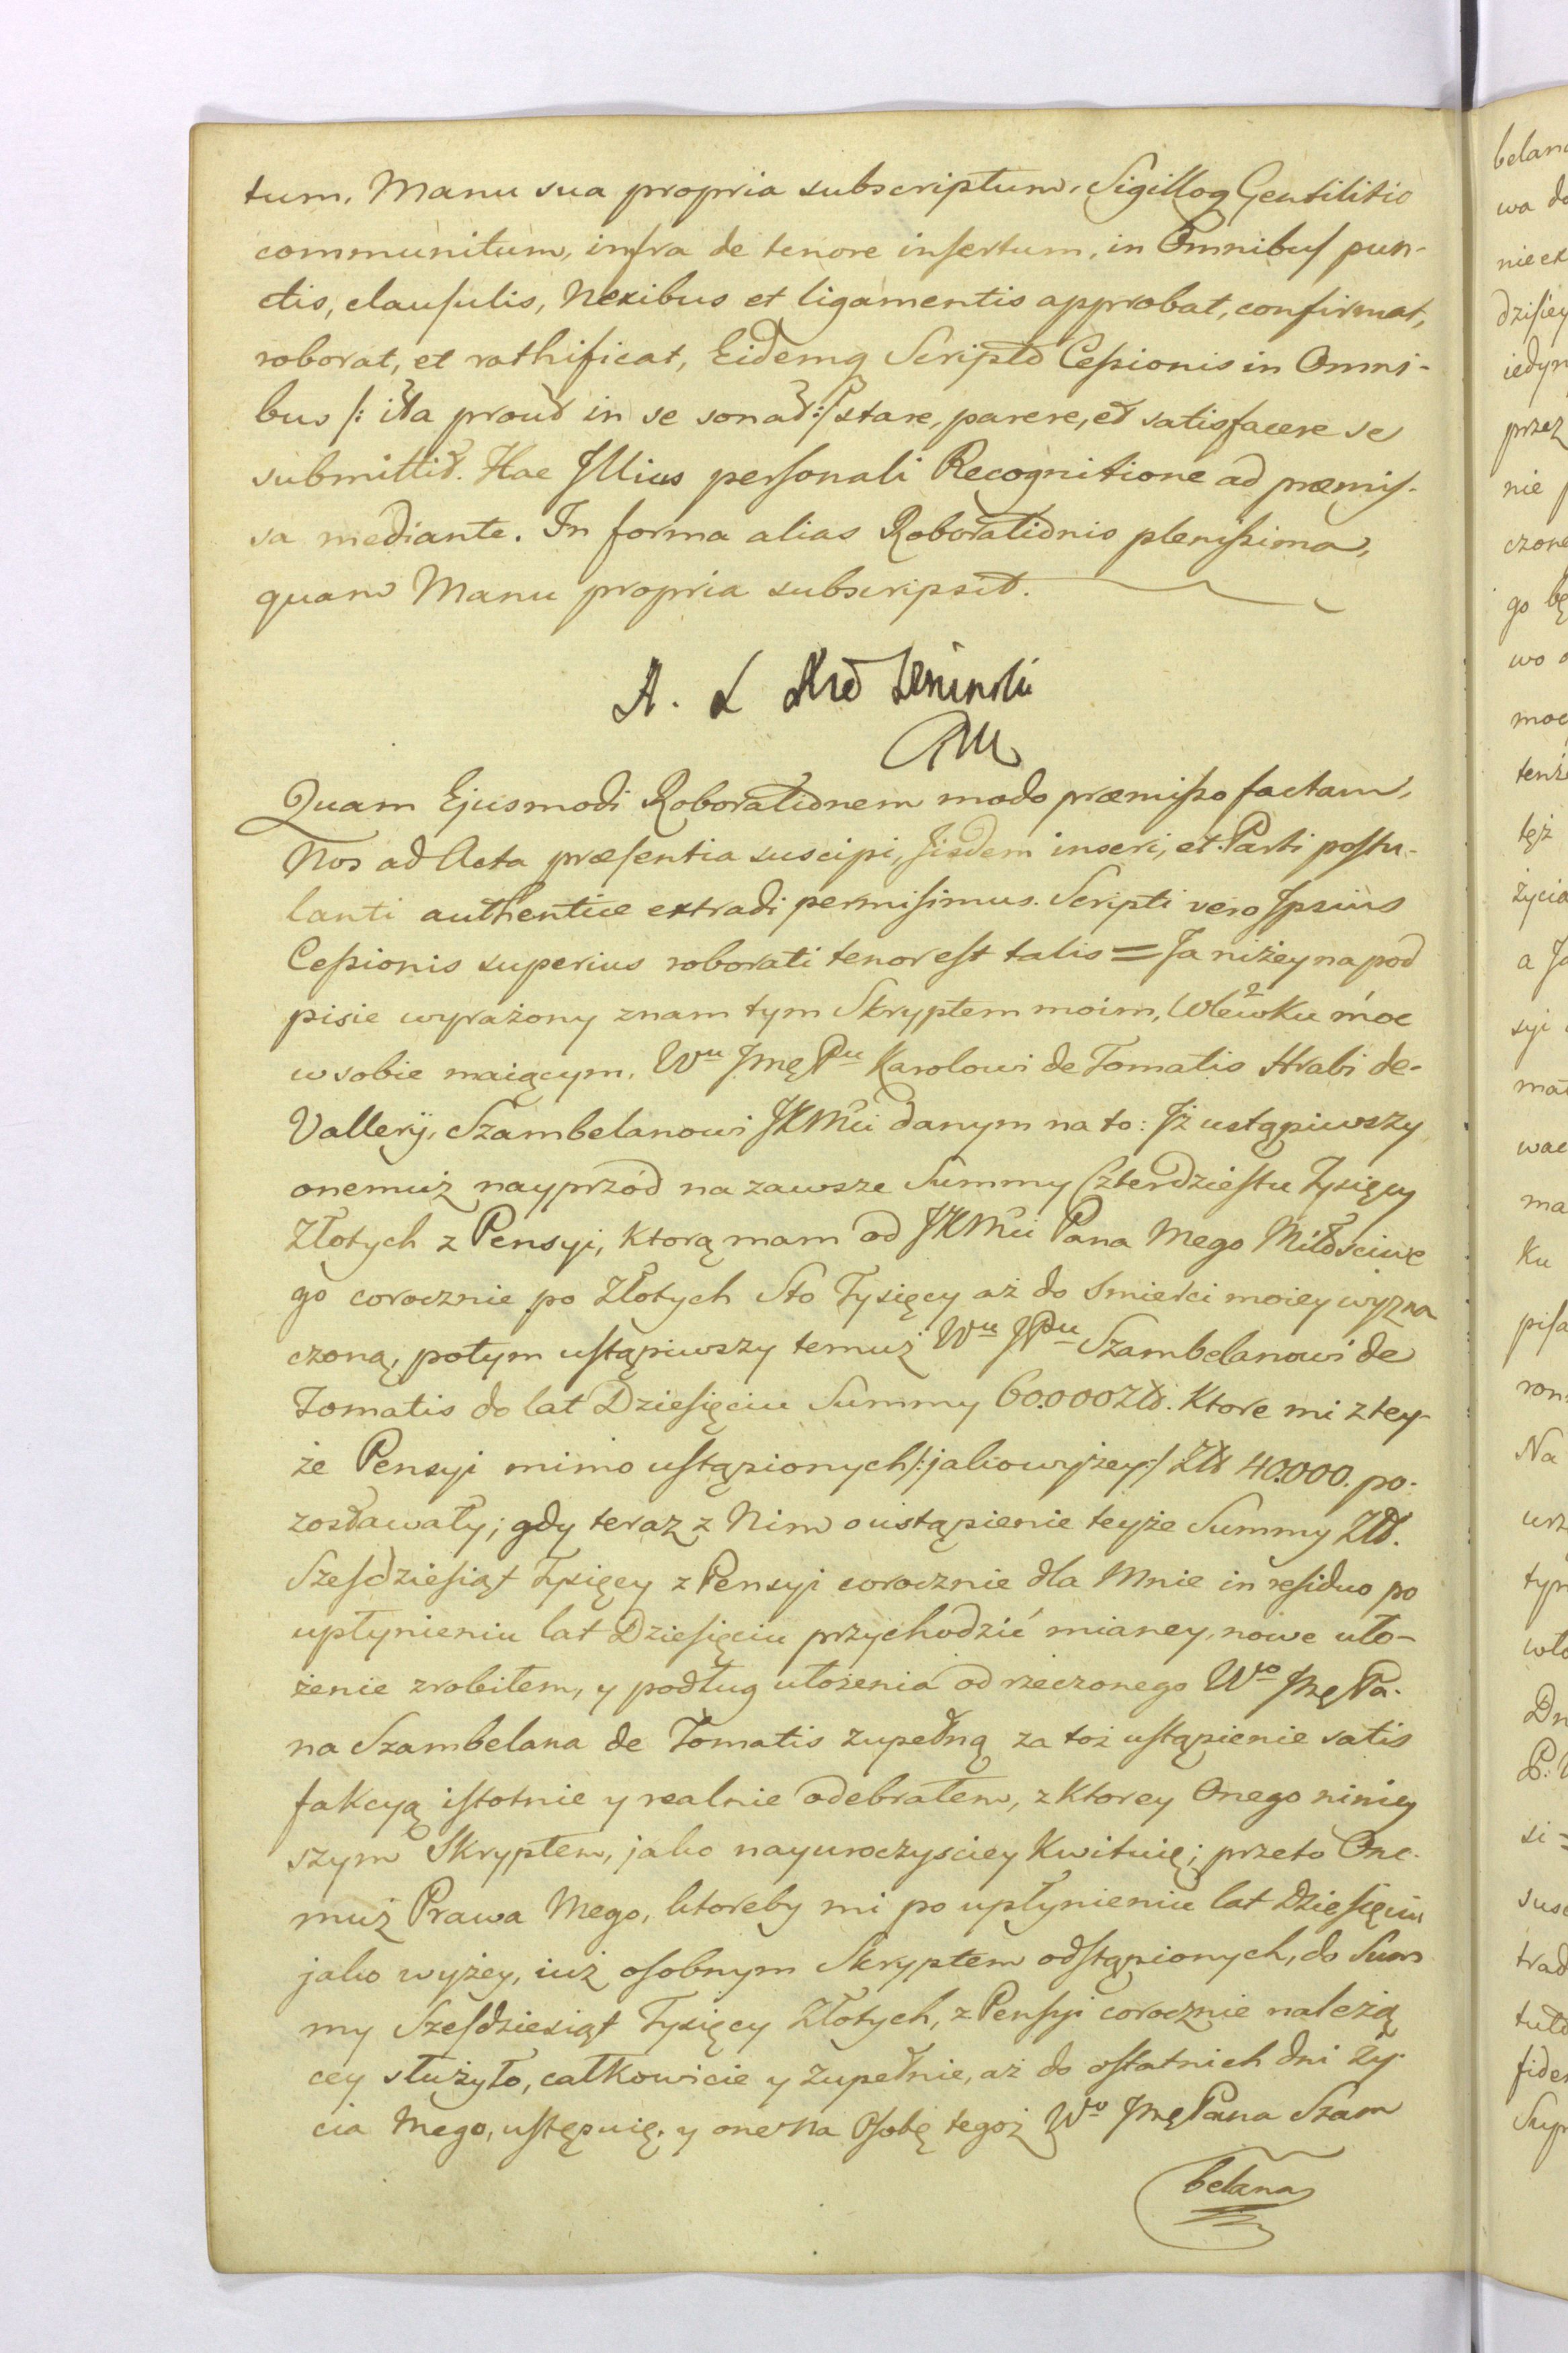 tum, Manu sua propria subscriptum, Sigilloq Gentilitio
communitum, infra de tenore insertum, in Omnibus pun-
ctis, clausulis, Nexibus et ligamentis approbat, confirmat,
roborat, et rathificat, Eidemq Scripto Cessionis in Omni-
bus /: ita prout in se sonat :/ stare, parere, et satisfacere se
submittit. Hac Illius personali Recognitione ad præmis-
sa mediante. In forma alias Roborationis plenissima,
quam Manu propria subscripsit.
A. Ł
Quam Ejusmodi Roborationem modo præmisso factam,
Nos ad Acta præsentia suscipi, Jisdem inseri, et Parti postu-
lanti authentice extradi permisimus. Scripti vero Ipsius
Cessionis superius roborati tenor est talis = Ja niżey na pod
pisie wyrażony znam tym Skryptem moim, Wlewku moc
w sobie maiącym, Wu Jmę Pu Karolowi de Tomatis Hrabi de-
Vallerij, Szambelanowi JKMci danym na to: Jż ustąpiwszy
onemuż nayprzód na zawsze Summy Czterdziestu Tysięcy
Złotych z Pensyi, ktorą mam od JKMci Pana Mego Miłościwe
go corocznie po Złotych Sto Tysięcy aż do Smierci moiey wyzna
czoną, potym ustąpiwszy temuż Wu JPu Szambelanowi de
Tomatis do lat Dziesięciu Summy 60.000 Złt. Ktore mi z tey-
że Pensyi mimo ustąpionych /: jako wyżey :/ Złt 40.000. po-
zostawały; gdy teraz z Nim o ustąpienie teyże Summy Złt.
Szesdziesiąt Tysięcy z Pensyi corocznie dla Mnie in residuo po
upłynieniu lat Dziesięciu przychodzić mianey, nowe uło-
żenie zrobiłem, y podług ułożenia od rzeczonego Wo Jmę Pa-
na Szambelana de Tomatis zupełną za toż ustąpienie satis
fakcyą istotnie y realnie odebrałem, z ktorey Onego niniey
szym Skryptem, jako nayuroczysciey kwituię; przeto One-
muż Prawa Mego, ktoreby mi po upłynieniu lat Dziesięciu
jako wyżey, iuż osobnym Skryptem odstąpionych, do Sum
my Szesdziesiąt Tysięcy Złotych, z Pensyi corocznie należą
cey służyło, całkowicie y zupełnie, aż do ostatnich dni Ży-
cia Mego, ustępuię, y one na Osobę tegoż Wo Jmę Pana Szam
belana